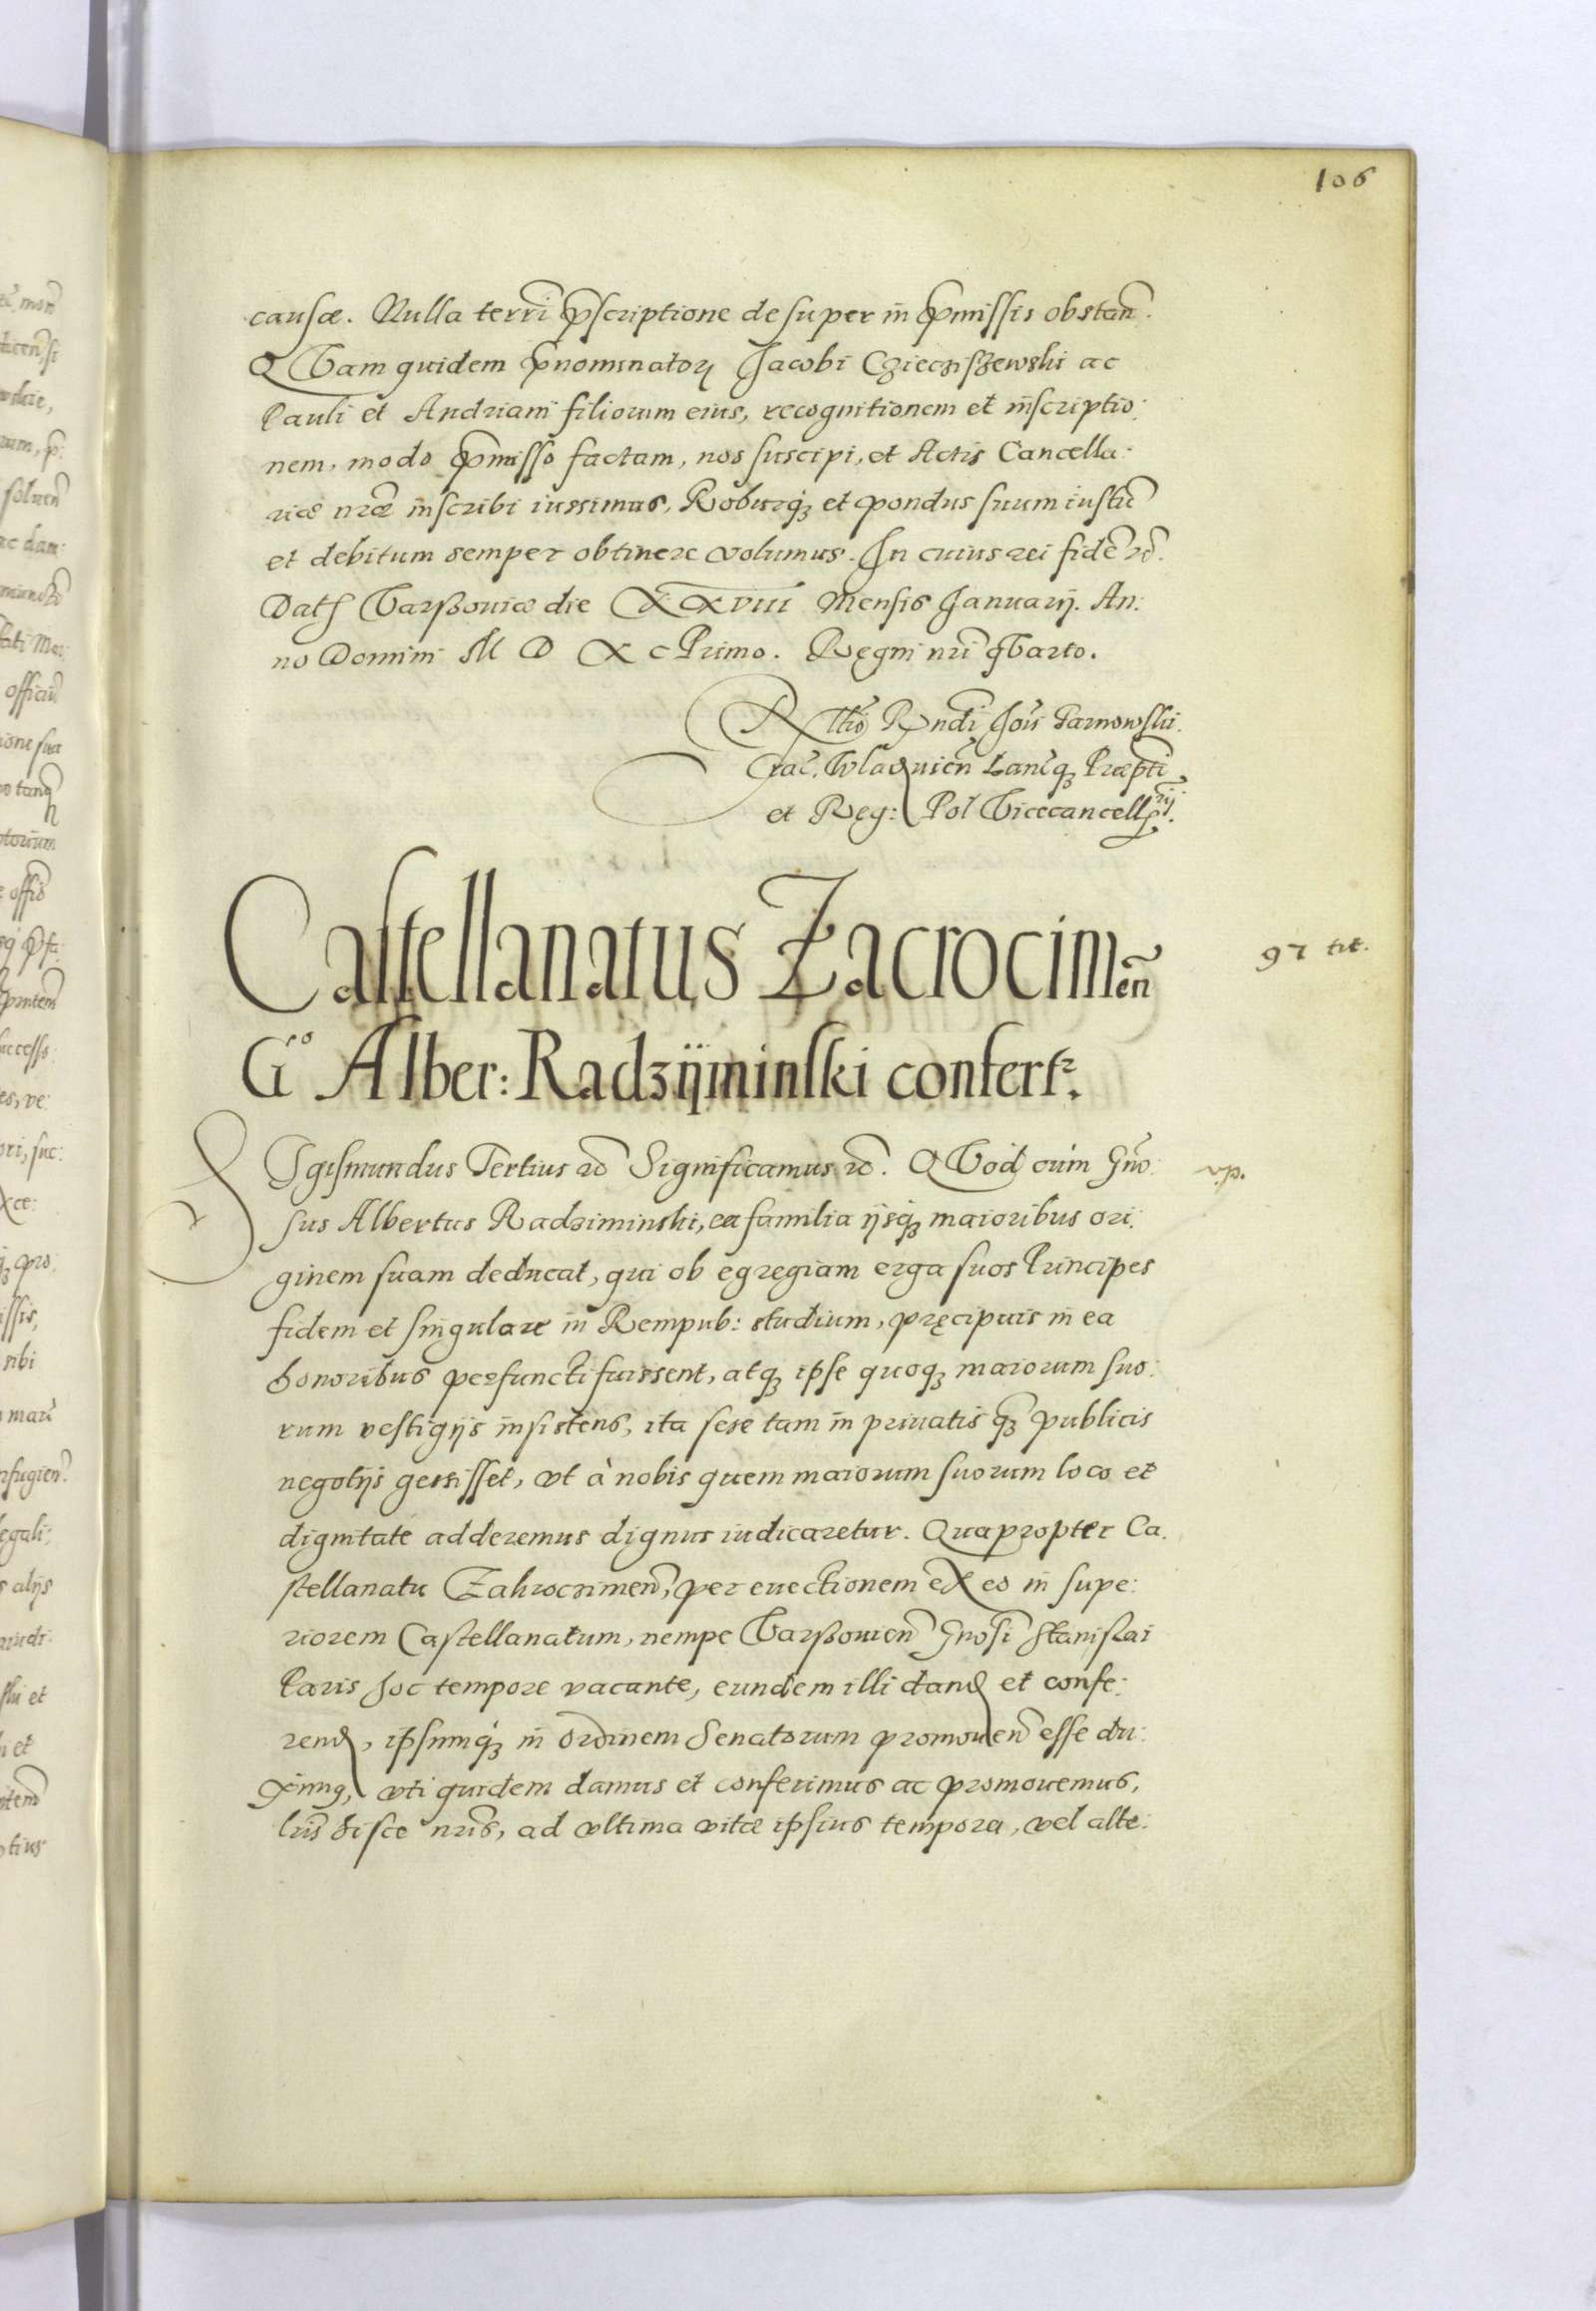 106
causæ. Nulla terri p̃scriptione desuper in p̃missis obstañ.
QVam quidem p̃nominatorꝝ Jacobi Cziecziszewski ac
Pauli et Andriani filiorum eius, recognitionem et inscriptio:
nem, modo p̃misso factam, nos suscipi, et Actis Cancella:
riæ nræ inscribi iussimus, Roburqꝫ et pondus suum iustũ
et debitum semper obtinere volumus. In cuius rei fidẽ &c.
Dat Varßouiæ die XXVIII Mensis Januarij. An:
no Domini M D XC Primo. Regni nri qVarto.
Rltio Rndi Jois Tarnowski.
Crac. Wladuien Lanc̃qꝫ Præpti
et Reg: Pol Vicecancellrij.
Castellanatus Zacrocimeñ
Gᵒ Alber: Radzijminski confertᵣ.
97 tit.
SIgismundus Tertius &c Significamus &c. QVod cùm Gñro:
v.p.
sus Albertus Radziminski, ea familia ijsqꝫ maioribus ori:
ginem suam deducat, qui ob egregiam erga suos Principes
fidem et singulare in Rempub: studium, pręcipuis in ea
honoribus perfuncti fuissent, atqꝫ ipse quoqꝫ maiorum suo:
rum vestigijs insistens, ita sese tam in priuatis qꝫ publicis
negotijs gessisset, vt à nobis quem maiorum suorum loco et
dignitate adderemus dignus iudicaretur. Quapropter Ca:
stellanatu Zakrocrimeñ, per euectionem ex eo in supe:
riorem Castellanatum, nempe Varßouieñ Gnosi Stanislai
Paris hoc tempore vacante, eundem illi dand et confe:
rend, ipsumqꝫ in ordinem Senatorum promoueñ esse du:
ximꝰ, vti quidem damus et conferimus ac promouemus,
lris hisce nris, ad vltima vitæ ipsius tempora, vel alte: